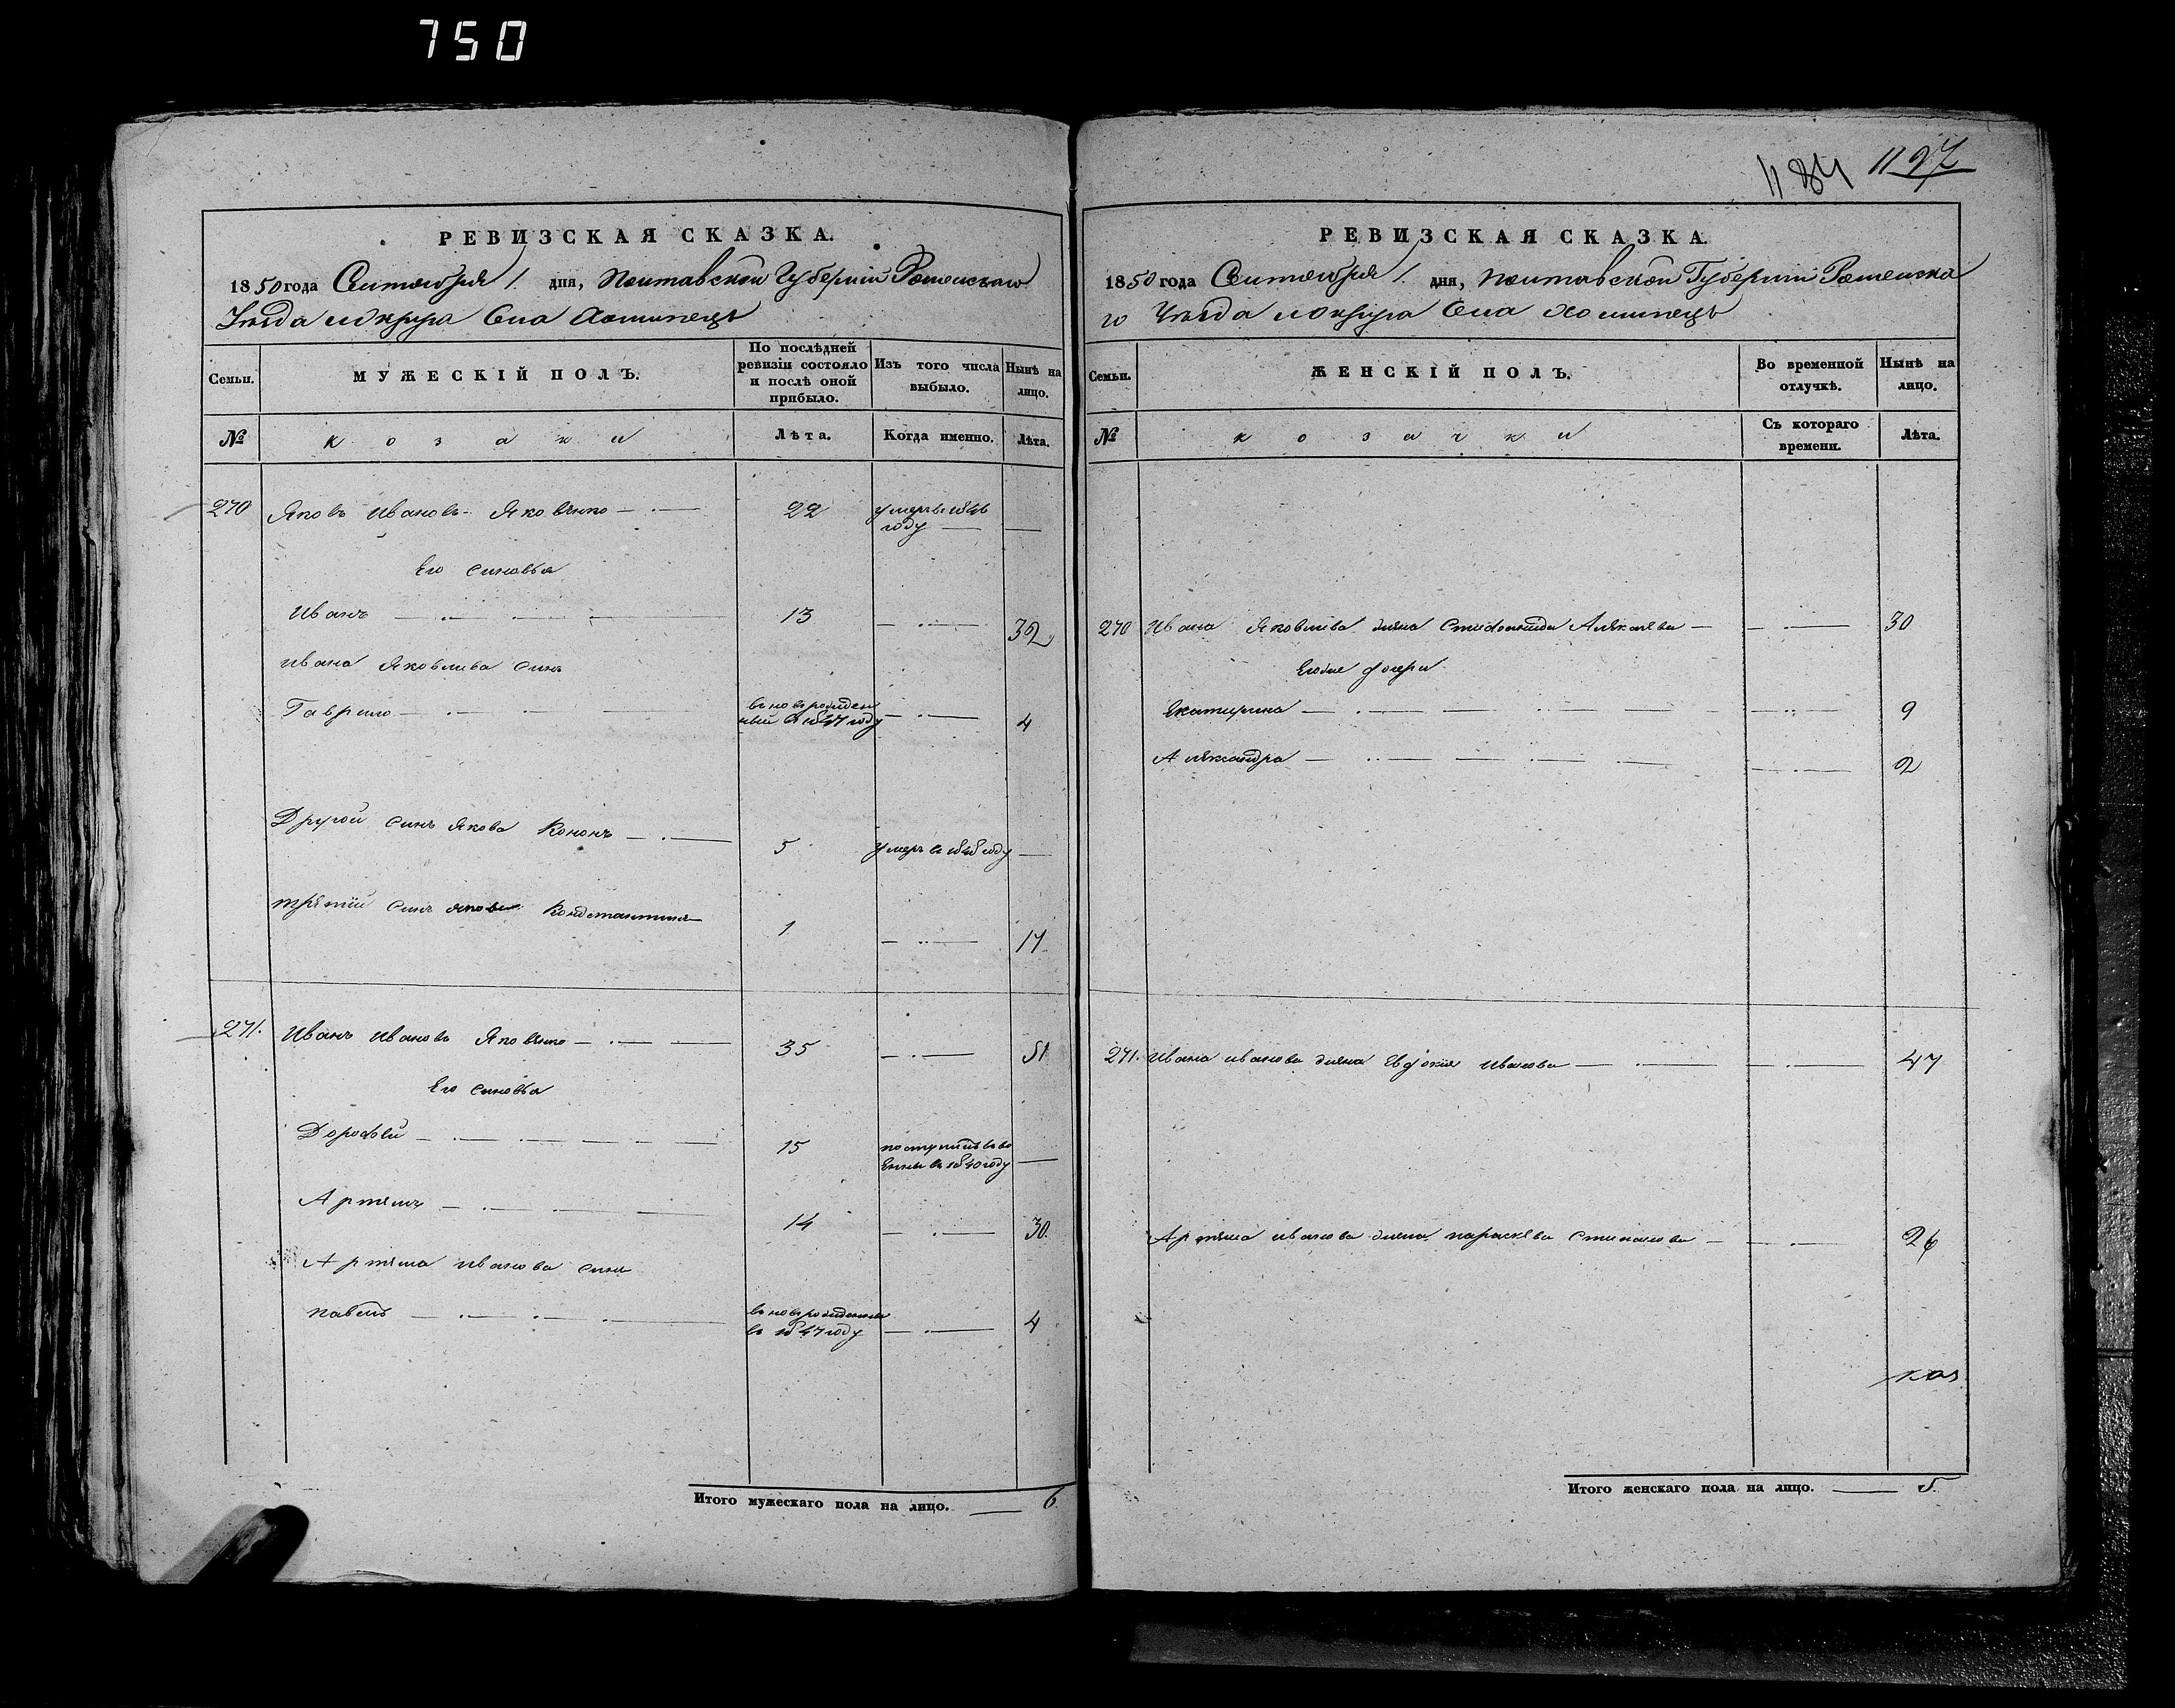 750
РЕВИЗСКАЯ СКАЗКА.
1850 года Сентября 1. дня, Полтавской Губернии Роменскаго
Уезда округа Села
Семьи.
МУЖЕСКІЙ ПОЛЪ.
По послѣдней ревизіи состояло и послѣ оной прибыло.
Изъ того числа выбыло.
Нынѣ на лицо.
№
козаки
Лѣта.
Когда именно.
Лѣта.
270 Яковъ Ивановъ Яковенко 22 умеръ в 1846 году
Его синовья
Иванъ 13 32
Ивана Яковлева синъ
Гаврило вновърожден
ный в 1847 году 4
Другой синъ Якова Кононъ 5 умеръ в году
третий синъ Якова Констант 1 17
271. Иванъ Ивановъ Яковенко 35 51
Его синовья
Дорофей 15 поступилъ в во
енны в 1840 году
Артемъ 14 30.
Артема Иванова синъ
Павелъ вновърожденны
въ 1847 году 4
Итого мужескаго пола на лицо. 6
1184 1197
РЕВИЗСКАЯ СКАЗКА.
1850 года Сентября 1. дня, Полтавской Губернии Роменска
го Уезда округа Села
Семьи.
ЖЕНСКІЙ ПОЛЪ.
Во временной отлучкѣ.
Нынѣ на лицо.
№
козачки
Съ котораго времени.
Лѣта.
270 Ивана Яковлева жена 30
Егоже дочери
Екатерина 9
Александра 2
271. Ивана Иванова жена Евдокия Иванова 47
Артема Иванова жена Параскева Степанова 26
Итого женскаго пола на лицо. 5.